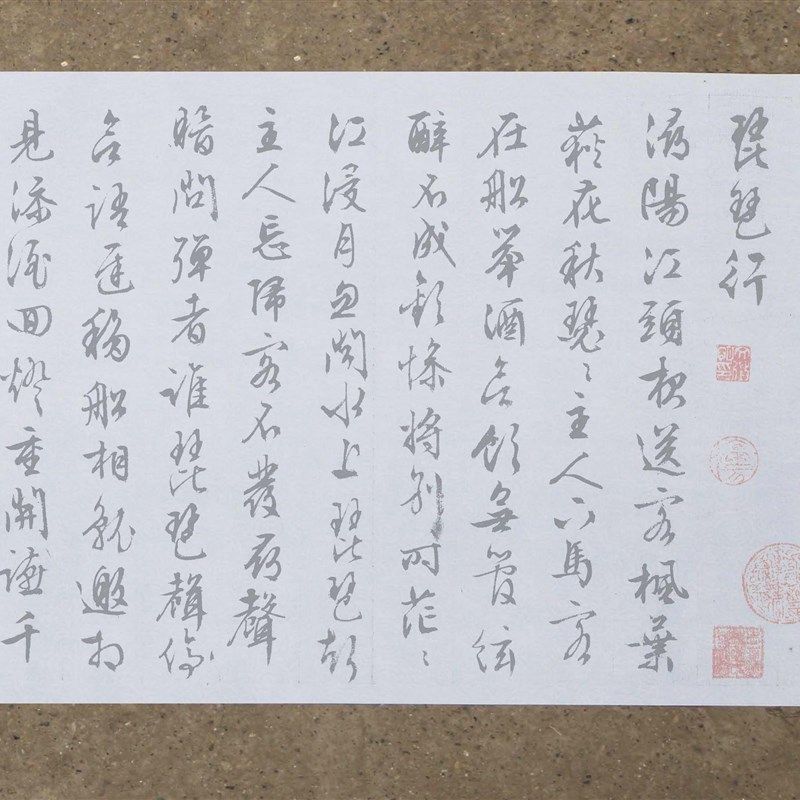 琵琶行
潯陽江頭夜送客楓葉
荻花秋瑟〻主人下馬客
在船舉酒欲飲無管絃
醉不成歡慘將別時茫〻
江浸月忽聞水上琵琶聲
主人忘歸客不發尋聲
暗問彈者誰琵琶聲停
欲語遲移船相就邀相
見添酒回燈重開讌千